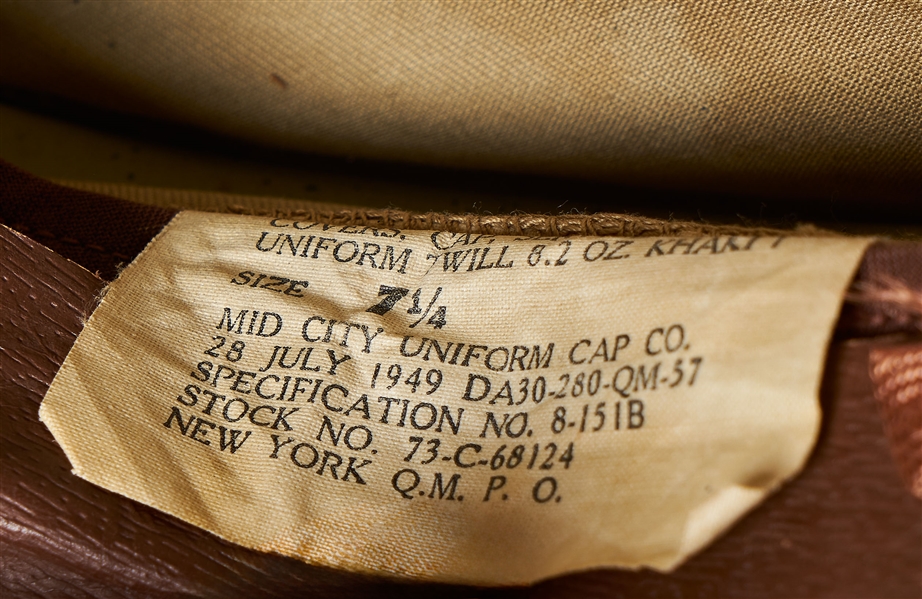 COVERS, CAP,
UNIFORM TWILL 8.2 OZ. KHAKI
SIZE 7 1/4
MID CITY UNIFORM CAP CO.
28 JULY 1949 DA30-280-QM-57
SPECIFICATION NO. 8-151B
STOCK NO. 73-C-68124
NEW YORK Q.M. P. O.